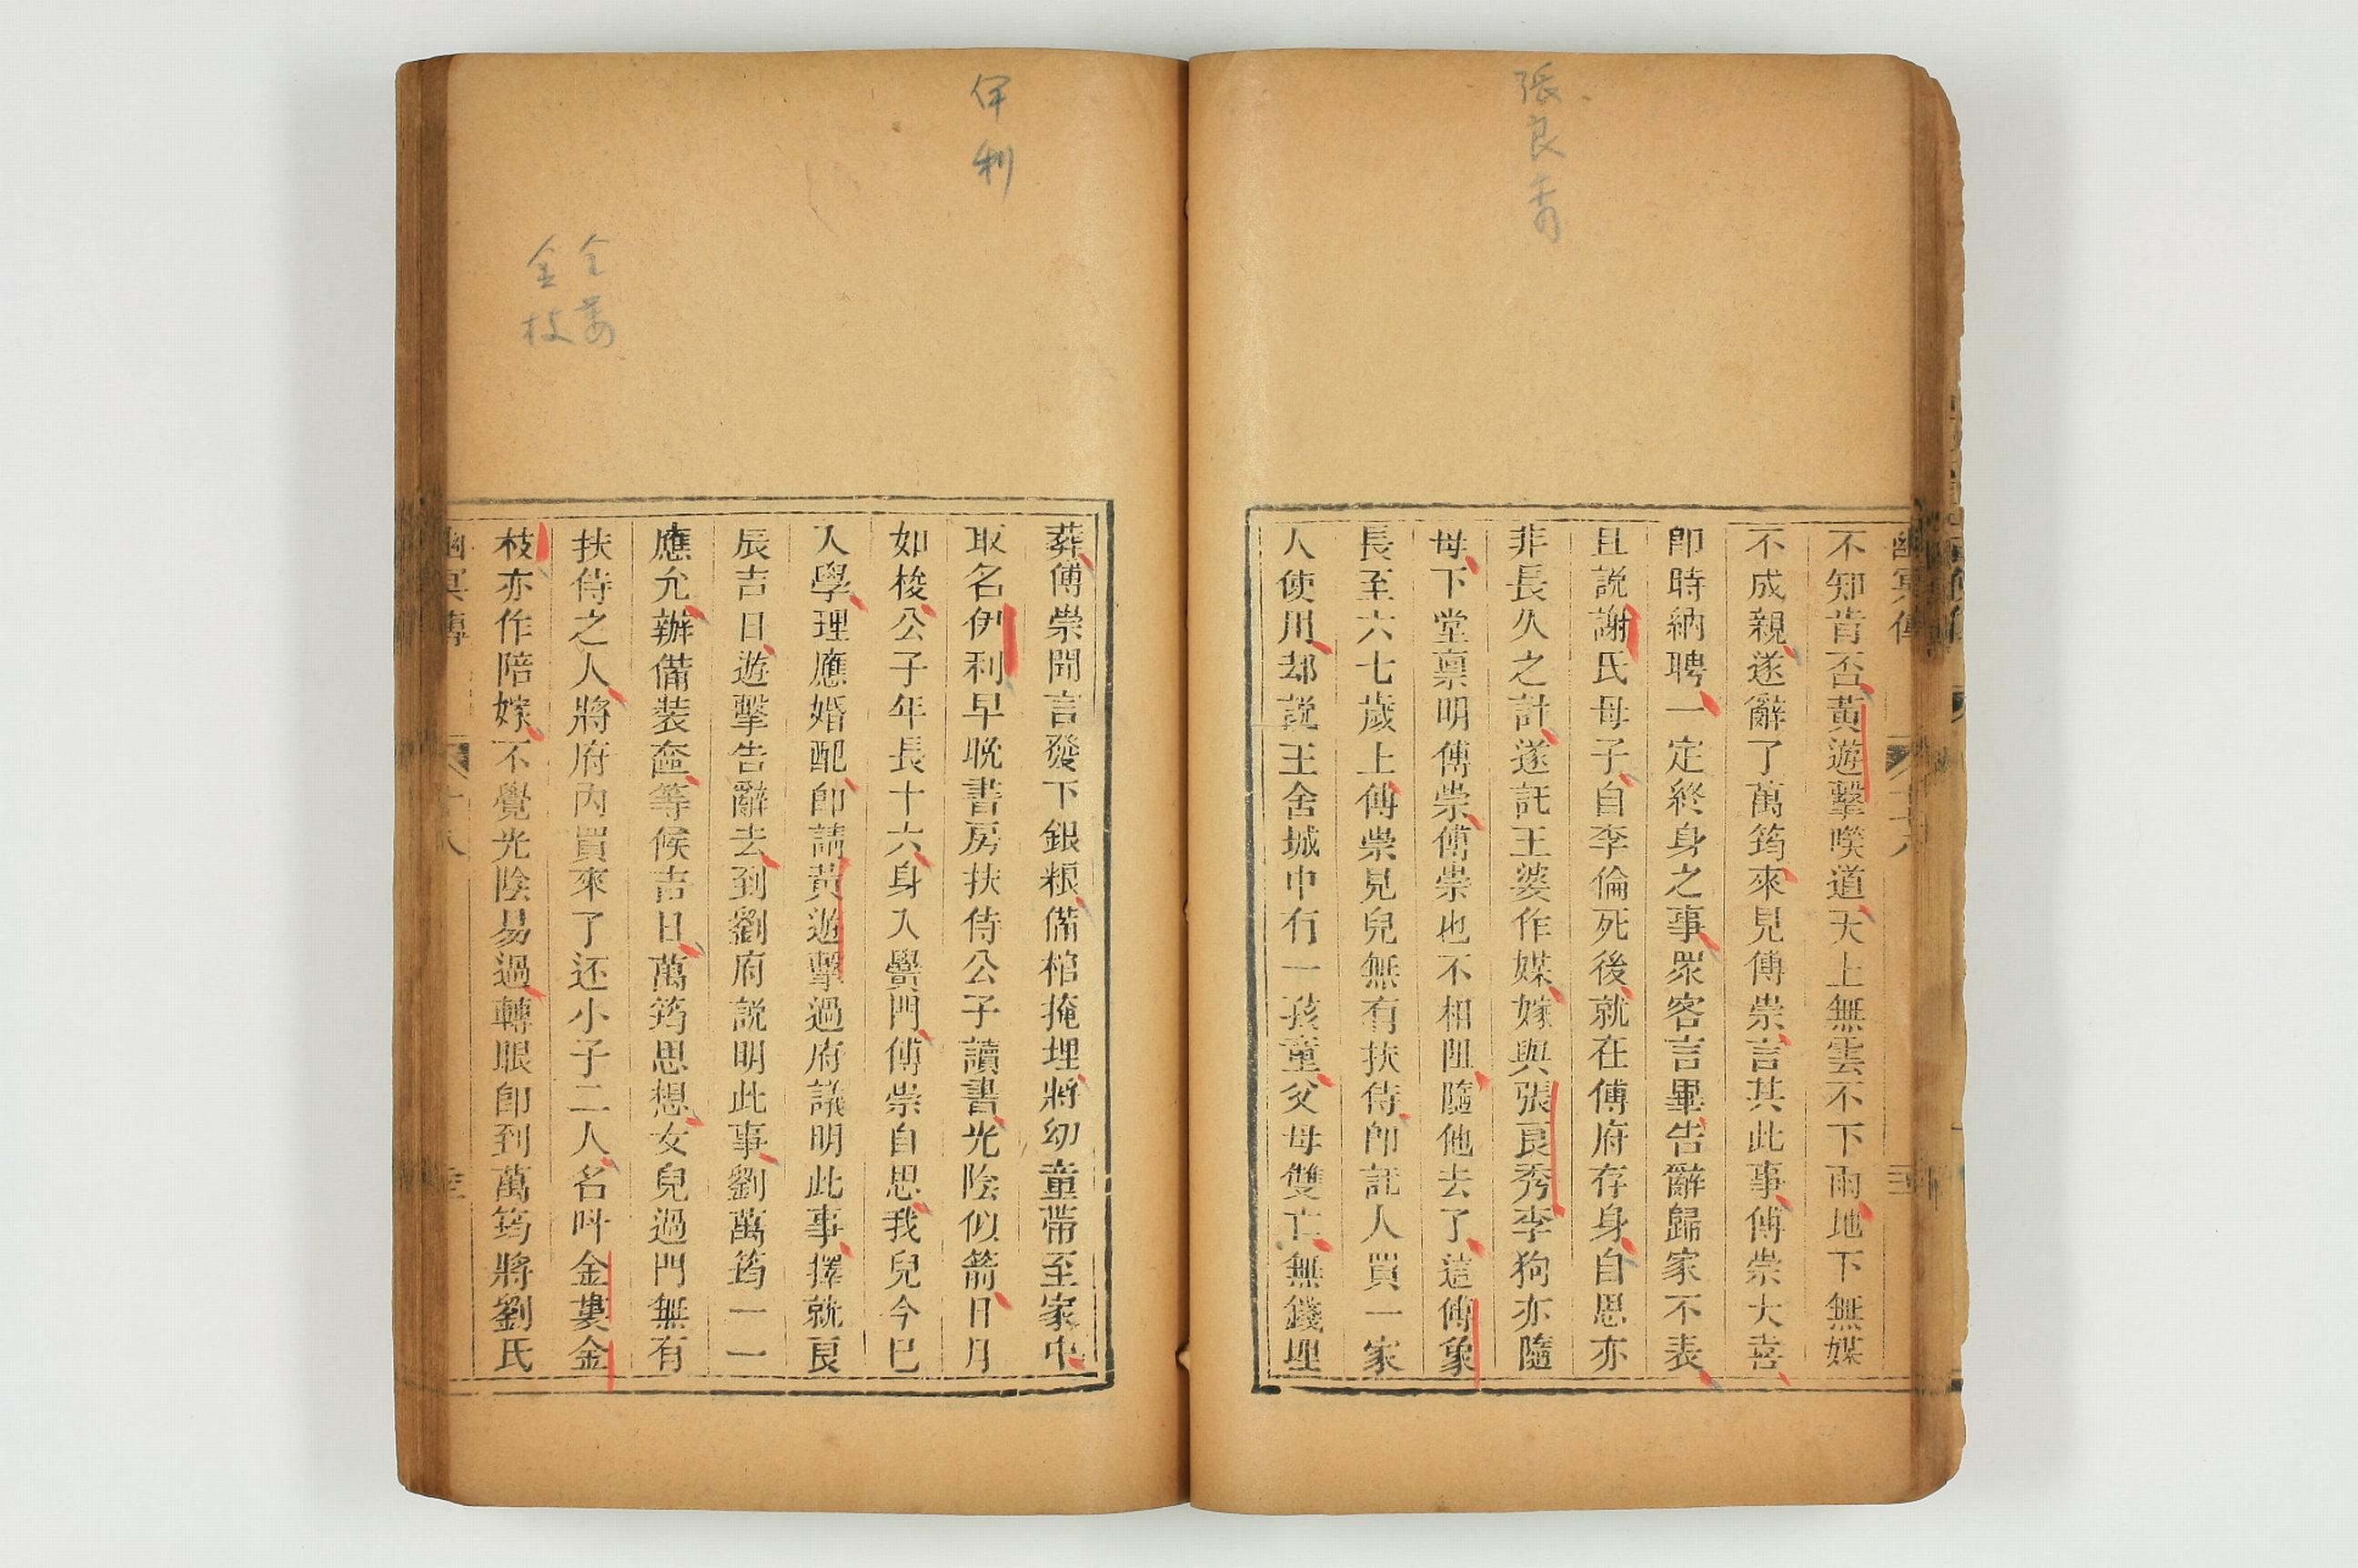 張良秀
不知肯否黃遊擊嘆道天上無雲不下雨地下無媒
不成親遂辭了萬筠來見傅崇言其此事傅崇大喜
卽時納聘一定終身之事眾客言畢告辭歸家不表
且説謝氏母子自李倫死後就在傅府存身自思亦
非長久之計遂託王婆作媒嫁與張良秀李狗亦隨
母下堂稟明傅崇傅崇也不相阻隨他去了這傅象
長至六七歲上傅崇見兒無有扶侍卽託人買一家
人使用却説王舍城中有一孩童父母雙亡無錢埋
伊利
金蔞
金枝
葬傅崇聞言發下銀粮備棺掩埋將幼童帶至家中
取名伊利早晚書房扶侍公子讀書光陰似箭日月
如梭公子年長十六身入黌門傅崇自思我兒今已
入學理應婚配卽請黃遊擊過府議明此事擇就良
辰吉日遊擊告辭去到劉府説明此事劉萬筠一一
應允辦備裝奩等候吉日萬筠思想女兒過門無有
扶侍之人將府内買來了还小子二人名呌金蔞金
枝亦作陪嫁不覺光陰易過轉眼卽到萬筠將劉氏
幽冥傳